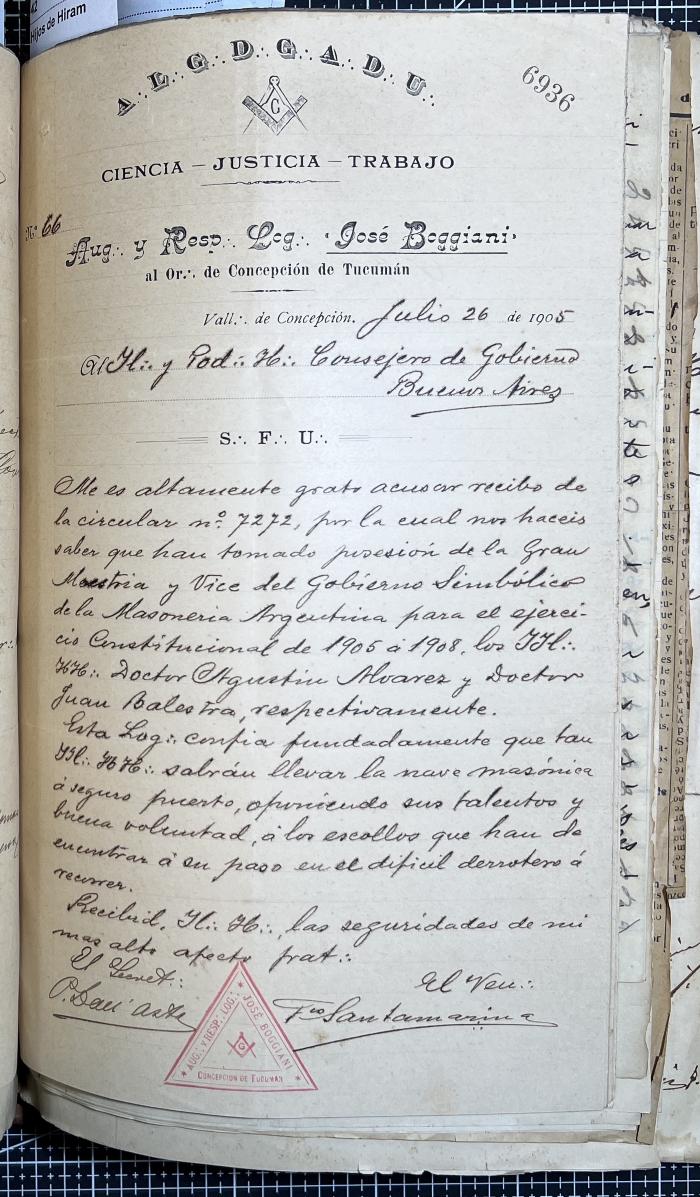 42
Hijos de Hiram
A.·. L.·. G.·. D.·. G.·. A.·. D.·. U.·.
6936
G
CIENCIA – JUSTICIA – TRABAJO
N.º 66
Aug.·. y Resp.·. Log.·. "José Boggiani"
al Or.·. de Concepción de Tucumán
Vall.·. de Concepción. Julio 26 de 1905
Al Il.·. y Pod.·. H.·. Consejero de Gobierno
Buenos Aires
S.·. F.·. U.·.
Me es altamente grato acusar recibo de
la circular nº 7272, por la cual nos haceis
saber que han tomado posesión de la Gran
Maestria y Vice del Gobierno Simbólico
de la Masoneria Argentina para el ejerci-
cio Constitucional de 1905 á 1908, los IIl.·.
HH.·. Doctor Agustin Alvarez y Doctor
Juan Balestra, respectivamente.
Esta Log.·. confia fundadamente que tan
IIl.·. HH.·. sabrán llevar la nave masónica
á seguro puerto, oponiendo sus talentos y
buena voluntad, á los escollos que han de
encontrar á su paso en el dificil derrotero á
recorrer.
Recibid, Il.·. H.·., las seguridades de mi
mas alto afecto frat.·.
El Secret.·.
El Ven.·.
Fco Santamarina
AUG.·. Y RESP.·. LOG.·. JOSÉ BOGGIANI
G
CONCEPCION DE TUCUMÁN